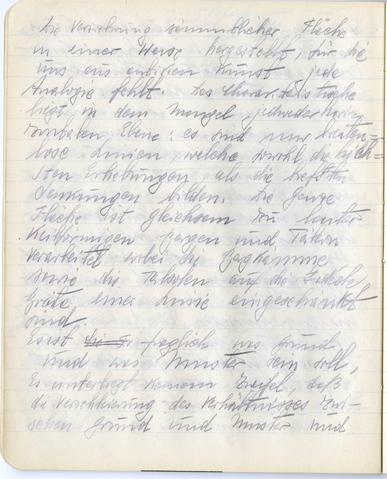 Die Verzierung sämmtlicher Fläche
in einer Weise hergestellt, für die
uns aus antiken Kunst jede
Analogie fehlt. Das Charakteristische
liegt in dem Mangel jedweder hori-
zontalen Ebene: es sind nur
lose Linien, welche sowohl die höch=
sten Erhebungen, als die tiefsten
Senkungen bilden. Die ganze
Fläche ist gleichsam zu lauter
keilförmigen Bergen und Tälern
verarbeitet wobei die Bergkämme
sowie die Talsohlen auf die
Gräte einer Linie eingeschränkt
sind.
Es ist fraglich was Grund
und was Muster sein soll,
Es unterliegt keinem Zweifel, daß
die Verschleierung des Verhältnisses zwi-
schen Grund und Muster und